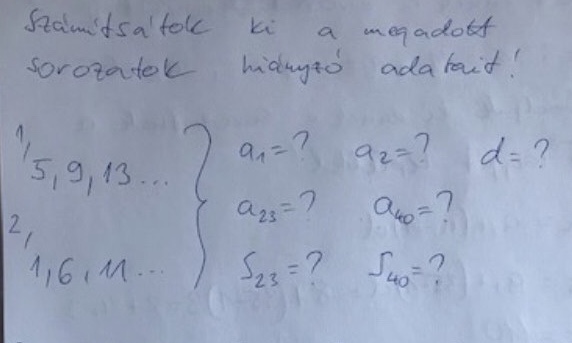 Számítsátok ki a megadott
sorozatok hiányzó adatait!
1, 5, 9, 13 ...
a₁=? a₂=? d=?
a₂₃=? a₄₀=?
2, 1, 6, 11 ...
S₂₃=? S₄₀=?